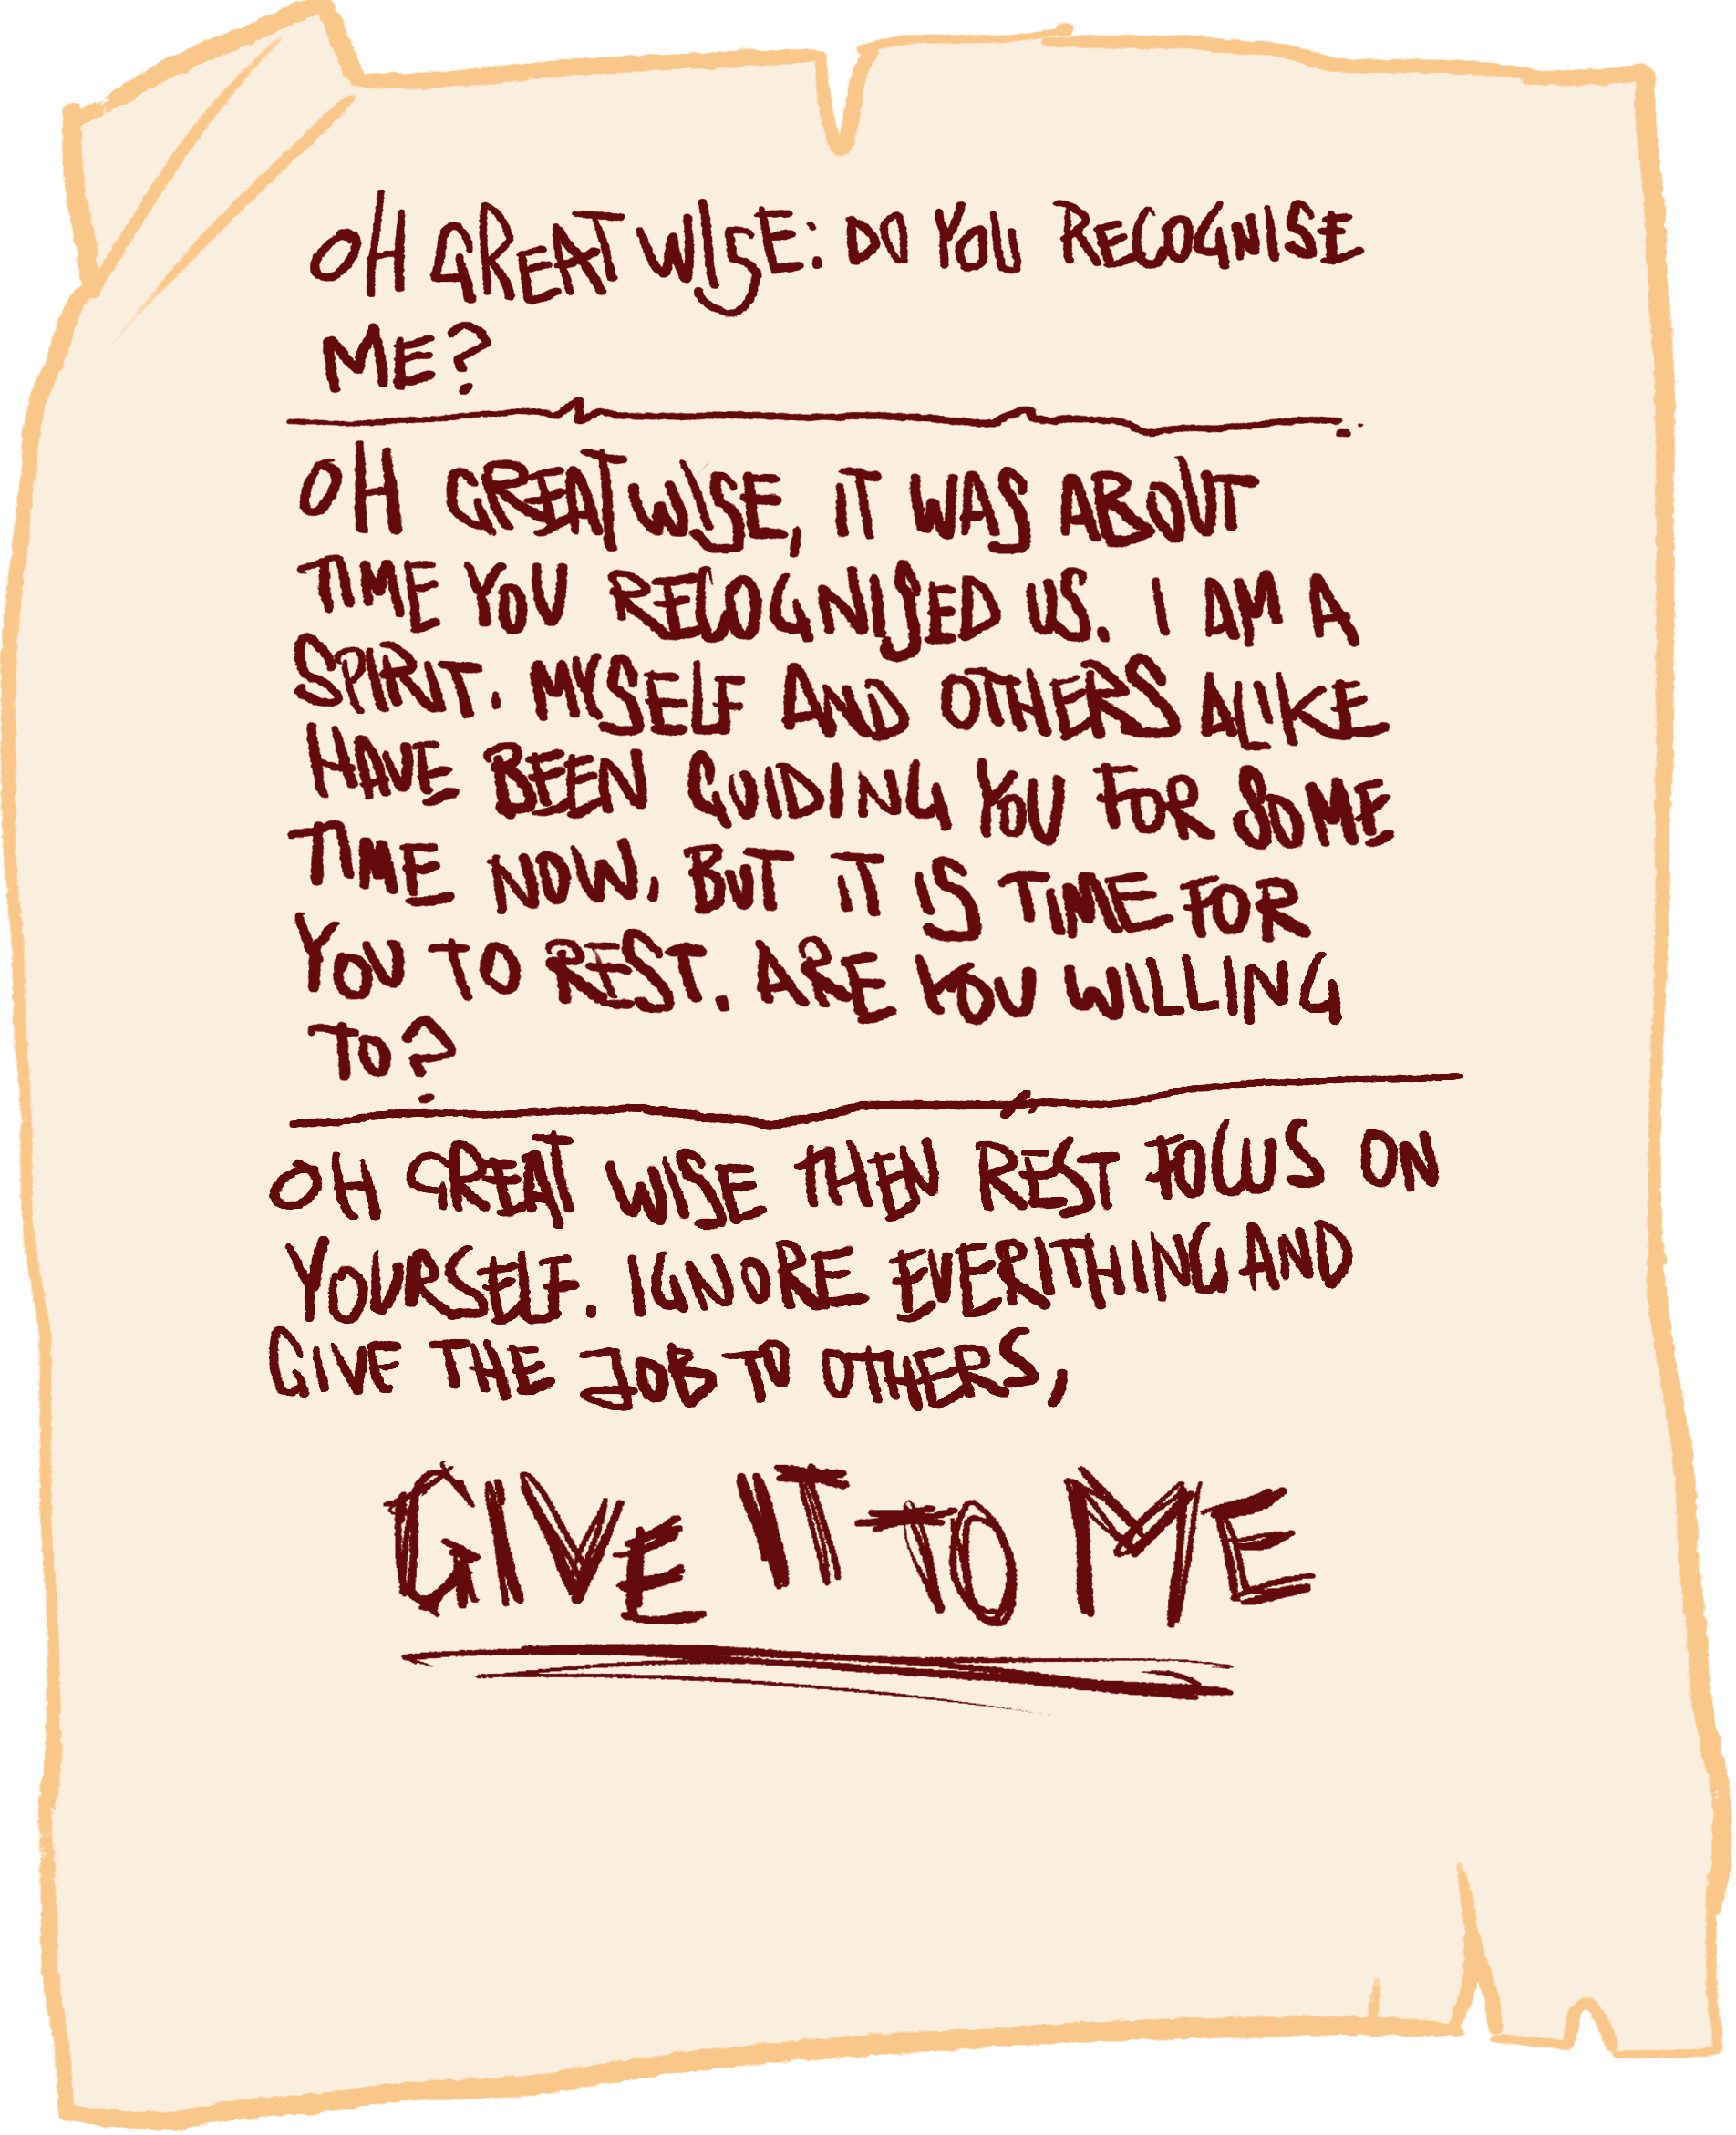 OH GREAT WISE: DO YOU RECOGNISE
ME?
OH GREAT WISE, IT WAS ABOUT
TIME YOU RECOGNISED US. I AM A
SPIRIT. MYSELF AND OTHERS ALIKE
HAVE BEEN GUIDING YOU FOR SOME
TIME NOW. BUT IT IS TIME FOR
YOU TO REST. ARE YOU WILLING
TO?
OH GREAT WISE THEN REST FOCUS ON
YOURSELF. IGNORE EVERITHING AND
GIVE THE JOB TO OTHERS,
GIVE IT TO ME